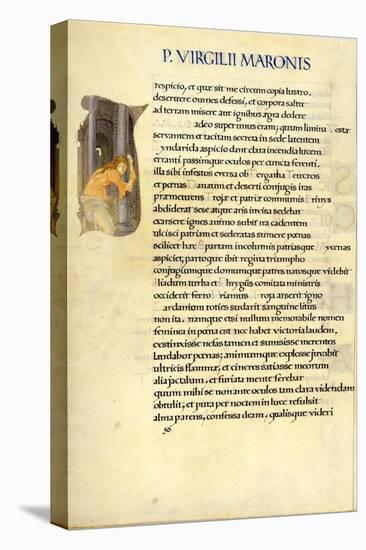 P. VIRGILII MARONIS
respicio, et quæ sit me circum copia lustro.
deseruere omnes defessi, et corpora saltu
ad terram misere aut ignibus ægra dedere
adeo super unus eram; quum limina Vestæ
servantem et tacitam secreta in sede latentem
Tyndarida aspicio dant clara incendia lucem
erranti passimque oculos per cuncta ferenti.
illa sibi infestos eversa ob Pergama Teucros
et pœnas Danaum et deserti conjugis iras
præmetuens Trojæ et patriæ communis Erinys
abdiderat sese atque aris invisa sedebat
exarsere ignes animo subit ira cadentem
ulcisci patriam et sceleratas sumere pœnas
scilicet hæc Spartam incolumis patriasque Mycenas
aspiciet, partoque ibit regina triumpho
conjugiumque domumque patres natosque videbit
Iliadum turba et Phrygiis comitata ministris
occiderit ferro Priamus Troja arserit igne
Dardanium toties sudarit sanguine litus
non ita. namque etsi nullum memorabile nomen
feminea in pœna est nec habet victoria laudem,
extinxisse nefas tamen et sumsisse merentes
laudabor pœnas; animumque explesse juvabit
ultricis flammæ, et cineres satiasse meorum
alia jactabam, et furiata mente ferebar
quum mihi se non ante oculos tam clara videndam
obtulit; et pura per noctem in luce refulsit
alma parens, confessa deam, qualisque videri
56